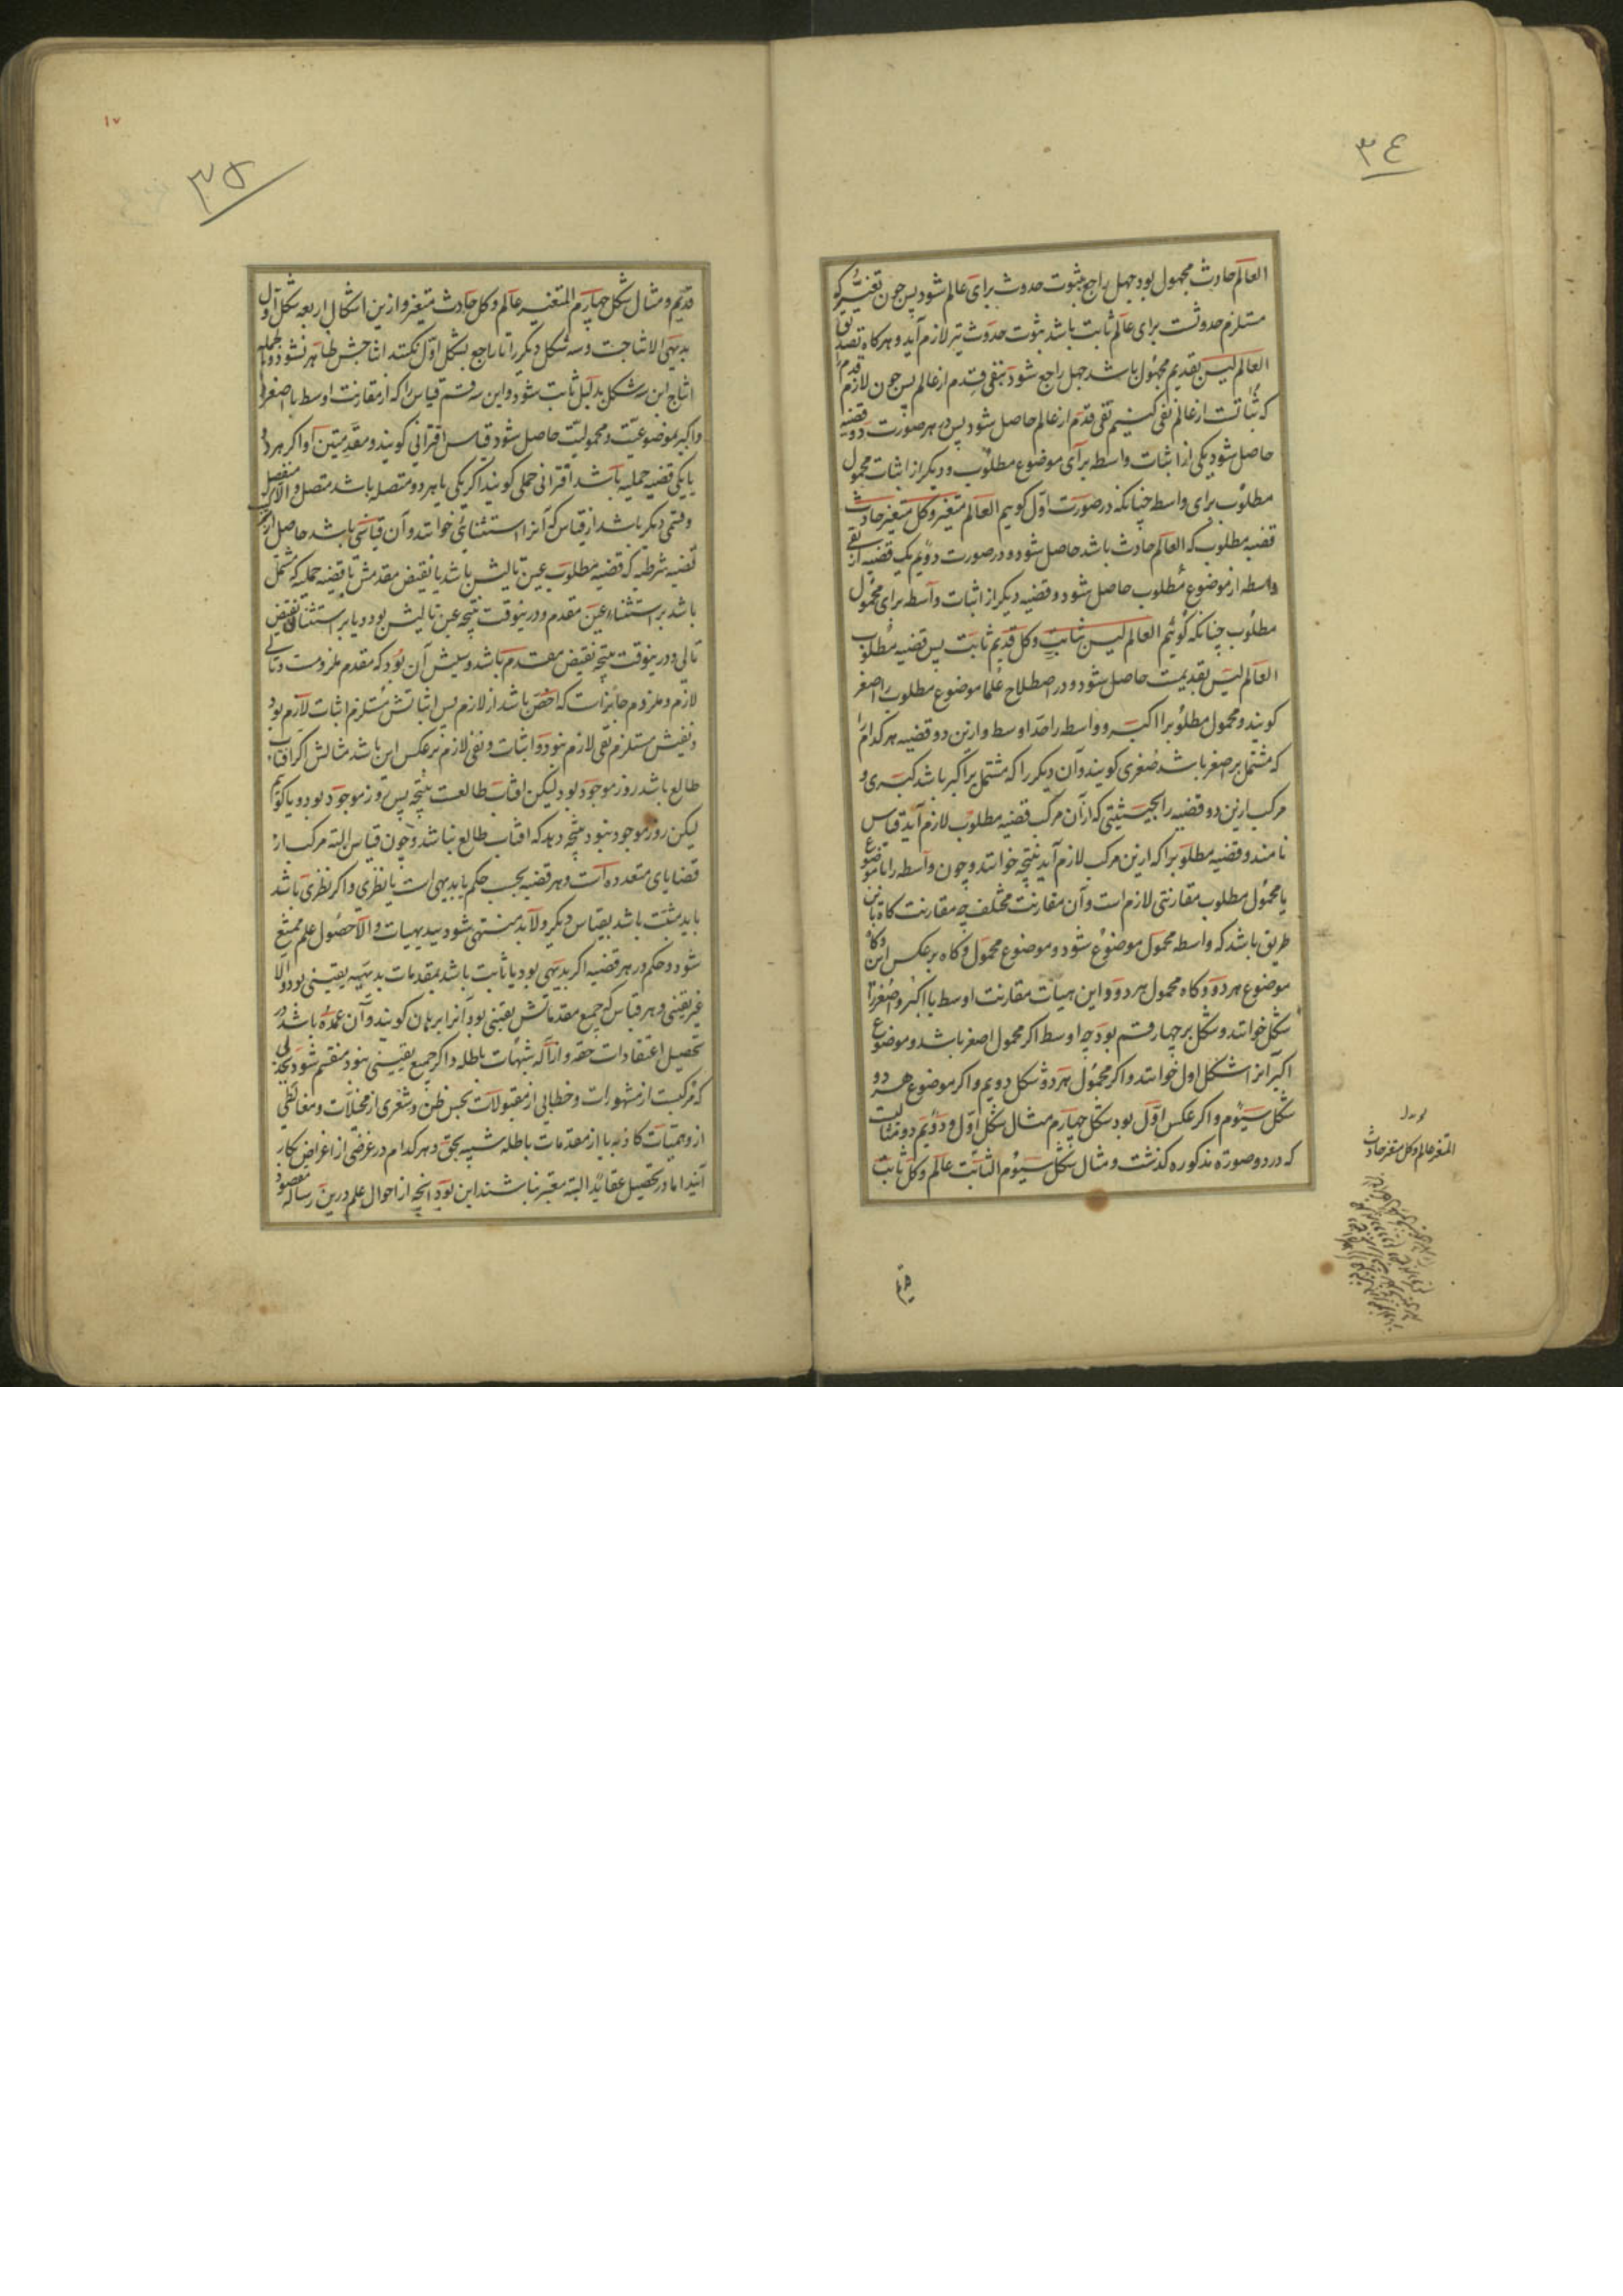 ٣٤
العالم حادث مجهول بود جهل راجع بثبوت حدوث برای عالم شود پس چون تغیّر که
مستلزم حدوثست برای عالم ثابت باشد ثبوت حدوث نیز لازم آید و هرکاه تصدیق
العالم لیس بقدیم مجهول باشد جهل راجع شود بنفی قدم از عالم پس چون لازم قدم
که ثباتست از عالم نفی کنیم نفی قدم از عالم حاصل شود پس در هر صورت دو قضیه
حاصل شود یکی از اثبات واسطه برای موضوع مطلوب و دیکر از اثبات محمول
مطلوب برای واسطه چنانکه در صورت اول کوییم العالم متغیر وکل متغیر حادث
قضیه مطلوب که العالم حادث باشد حاصل شود و در صورت دویم یک قضیه از نفی
واسطه از موضوع مطلوب حاصل شود و قضیه دیکر از اثبات واسطه برای محمول
مطلوب چنانکه کوییم العالم لیس بثابت وکل قدیم ثابت پس قضیه مطلوب
العالم لیس بقدیمست حاصل شود و در اصطلاح علما موضوع مطلوب را اصغر
کویند و محمول مطلوبرا اکبر و واسطه را حد اوسط و ازین دو قضیه هرکدام را
که مشتمل بر اصغر باشد صغری کویند و آن دیکر را که مشتمل بر اکبر باشد کبری و
مرکب ازین دو قضیه را بحیثیتی که از آن مرکب قضیه مطلوب لازم آید قیاس
نامند و قضیه مطلوبرا که ازین مرکب لازم آید نتیجه خوانند و چون واسطه را با موضوع
یا محمول مطلوب مقارنتی لازم است و آن مقارنت مختلف چه مقارنت کاه باین
طریق باشد که واسطه محمول موضوع شود و موضوع محمول و کاه برعکس این و کاه
موضوع هر دو و کاه محمول هر دو و این هیأت مقارنت اوسط با اکبر و اصغر را
شکل خوانند و شکل بر چهار قسم بود چه اوسط اکر محمول اصغر باشد و موضوع
اکبر آنرا شکل اول خوانند و اکر محمول هر دو شکل دویم و اکر موضوع هر دو
شکل سیوم و اکر عکس اول بود شکل چهارم مثال شکل اول و دویم دو مثالیست
که در دو صورة مذکوره کذشت و مثال شکل سیوم الثابت عالم وکل ثابت
المتغیر عالم وکل متغیر حادث
قدیم
١٧
٣٥
قدیم و مثال شکل چهارم المتغیر عالم وکل حادث متغیر و ازین اشکال اربعه شکل اول
بدیهی الانتاجست و سه شکل دیکر را تا راجع بشکل اول نکنند انتاجش ظاهر نشود و بالجمله
انتاج این سه شکل بدلیل ثابت شود و این سه قسم قیاس را که از مقارنت اوسط با اصغر
و اکبر بموضوعیت و محمولیت حاصل شود قیاس اقترانی کویند و مقدمتین او اکر هر دو
یا یکی قضیه حملیه باشد اقترانی حملی کویند اکر یکی یا هر دو متصل باشد متصل و الا منفصل
و قسمی دیکر باشد از قیاس که آنرا استثنائی خوانند و آن قیاسی باشد حاصل از
قضیه شرطیه که قضیه مطلوب عین تالیش باشد یا نقیض مقدمش با قضیه حملیه که مشتمل
باشد بر استثناء عین مقدم و درینوقت نتیجه عین تالیش بود و یا بر استثنای نقیض
تالی و درینوقت نتیجه نقیض مقدم باشد و سببش آن بود که مقدم ملزومست و تالی
لازم و ملزوم جایز است که اخص باشد از لازم پس اثباتش مستلزم اثبات لازم بود
و نفیش مستلزم نفی لازم نبود و اثبات و نفی لازم برعکس این باشد مثالش اکر افتاب
طالع باشد روز موجود بود لیکن افتاب طالعست نتیجه پس روز موجود بود و یا کوییم
لیکن روز موجود نبود نتیجه دهد که افتاب طالع نباشد و چون قیاس البته مرکب از
قضایای متعدده است و هر قضیه بحسب حکم یا بدیهی است یا نظری و اکر نظری باشد
باید مثبت باشد بقیاس دیکر و لابد منتهی شود ببدیهیات والا حصول علم ممتنع
شود و حکم در هر قضیه اکر بدیهی بود یا ثابت باشد بمقدمات بدیهیه یقینی بود و الا
غیر یقینی و هر قیاس که جمیع مقدماتش یقینی بود آنرا برهان کویند و آن عمده باشد در
تحصیل اعتقادات حقه و ازاله شبهات باطله و اکر جمیع یقینی نبود منقسم شود بجدلی
که مرکبست از مشهورات و خطابی از مقبولات بحسن ظن و شعری از مخیلات و مغالطی
از وهمیات کاذبه یا از مقدمات باطله شبیه بحق و هرکدام در غرضی از اغراض بکار
آیند اما در تحصیل عقاید البته معتبر نباشند این بود انچه از احوال علم درین رساله مقصود